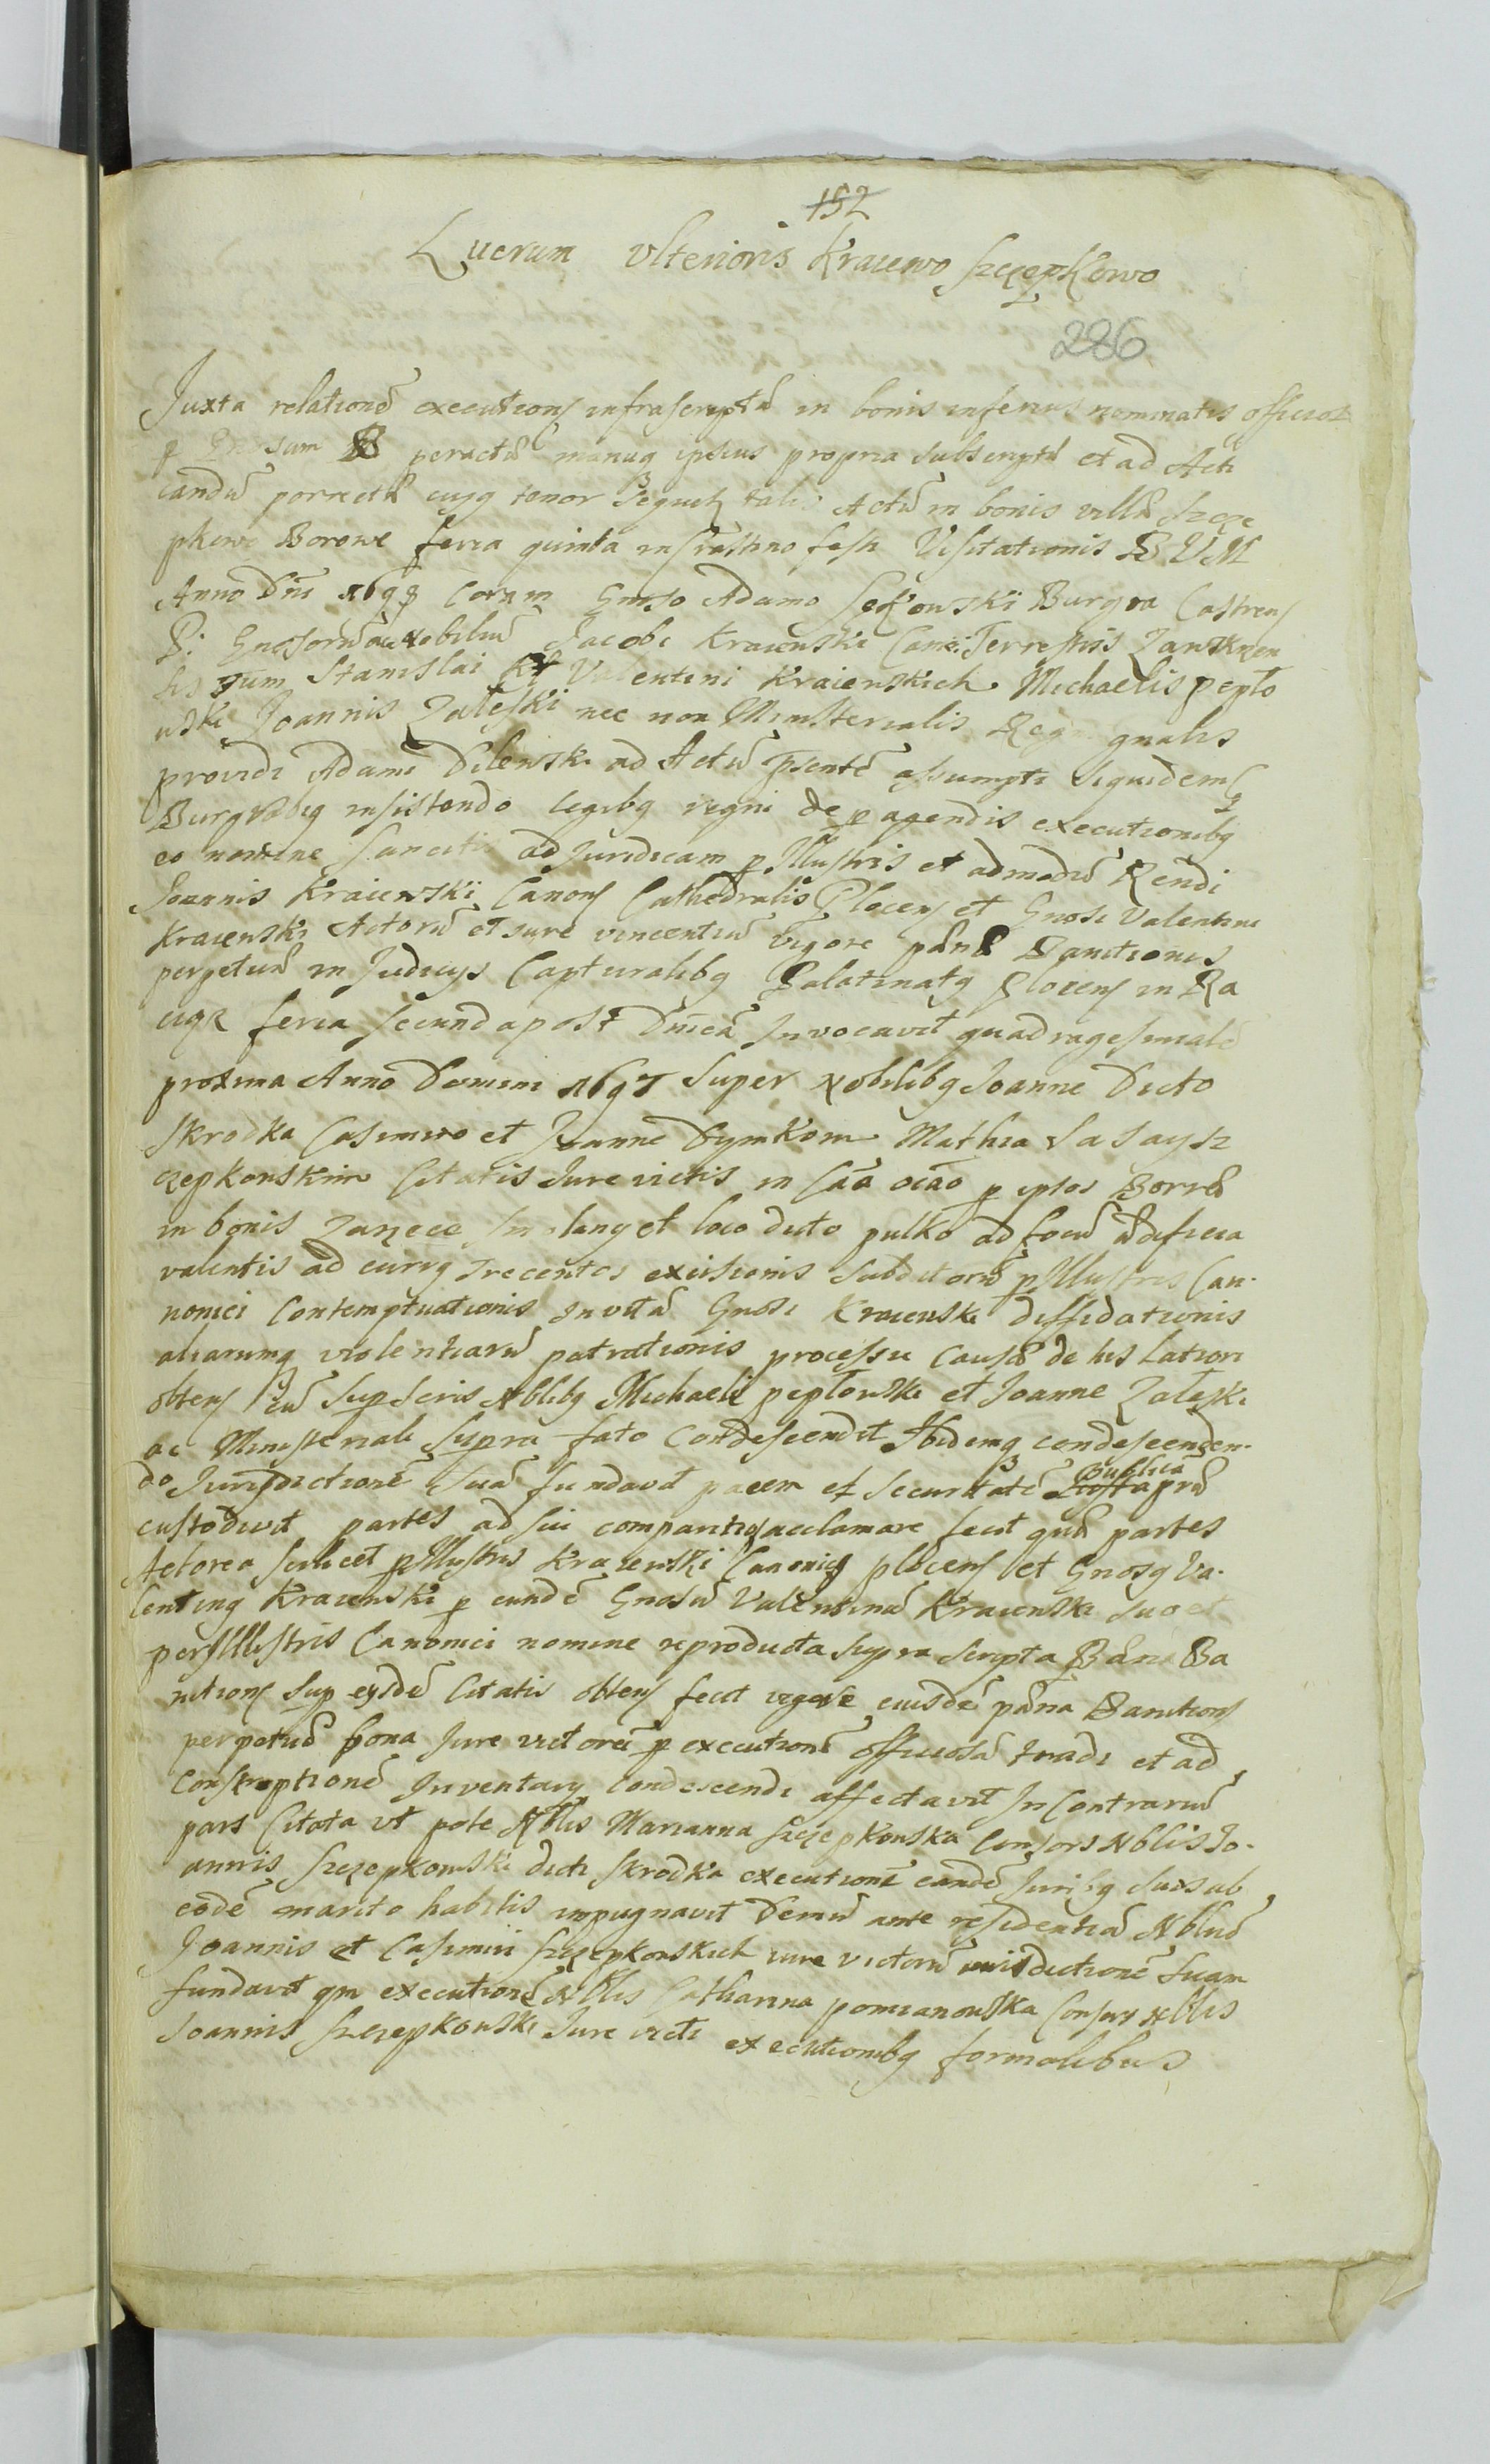 152
Lucrum vlterioris Kraiewo Szczepkowo
286
Juxta relationē executions infrascriptā in bonis inferius nominatis officiose
p peractā manuq ipsius propria subscriptā et ad Acti
candū porrectā cuiq tenor sequitr talis Actū in bonis villā Szcze
pkowo Borowe feria quinta in Crastino festi Visitationis B V M
Anno Dni 1698 Coram Gnoso Adamo Burgra Castrens
P: Gnosorū ac Nobiliū Jacobi Kraiewski Terrestris Zawskrzen
sis Tum Stanislai Valentini Kraiewskich Michaelis pepło
wski Joannis Zaleski nec non Ministerialis Regni gnalis
providi Adami Dilewski ad Actū psentē assumpti siquidem
Burgrabiq insistendo legibq regni de p agendis executionibq
eo nomine sancitis ad juridicam p Illustris et admodū Rendi
Joannis Kraiewski Canons Cathedralis Plocens et Gnosi Valentini
Kraiewski Actorū et jure vincentiū vigore Banitionis
perpetuā in Judicijs Capturalibq Palatinatq Plocens in Ra
ciąż feria secunda post Dnicā Invocavit quadragesimalē
proxima Anno Domini 1697 super Nobilibq Joanne Dicto
Skrodka Casimiro et Joanne Dymkom Mathia Sasay Sz
czepkowskimi Citatis Jure victis in Caā ocāō p ipsos Borrā
in bonis et loco dicto pulko ad focū ædificia
valentis ad curiq trecentes excisionis subditorū p Illustris Can-
nonici Contemptuationis Gnosi Kraiewski diffidationis
aliarumq violentiarū patrationis processu causā de his latiori
obtens cū Nblibq Michaele pepłowski et Joanne Zaleski
ac Ministeriali supra fato Condescendit Ibidemq condescenden-
do Jurisdictionē suā fundavit pacem et securitatē publicā
custodivit partes ad sui comparitiq acclamare fecit quā partes
Actorea scilicet p Illustris Kraiewski Canonicq plocens et Gnosq Va-
lentinq Kraiewski p eundē Gnosū Valentinū Kraiewski suo et
per Illustris Canonici nomine reproducta supra scripta Ba
nitions sup eisdē Citatis obtens fecit vigore eiusdē Banitions
perpetuā bona Jure victorū p executionē officiosā tradi et ad
Conscriptionē Inventarij condescendi affectavit In Contrariū
pars Citata vt pote Nblis Marianna Szczepkowska Consors Nblis Jo-
annis Szczepkowski dicti Skrodka executionē eandē Juribq suis ab
eodē marito habitis impugnavit Demū ante residentiā Nbliū
Joannis et Casimiri Szczepkowskich iure victorū iurisdictionē suam
fundavit qm executionē Nblis Catharina pomianowska Consors Nblis
Joannis Szczepkowski Jure victi executionibq formalibus